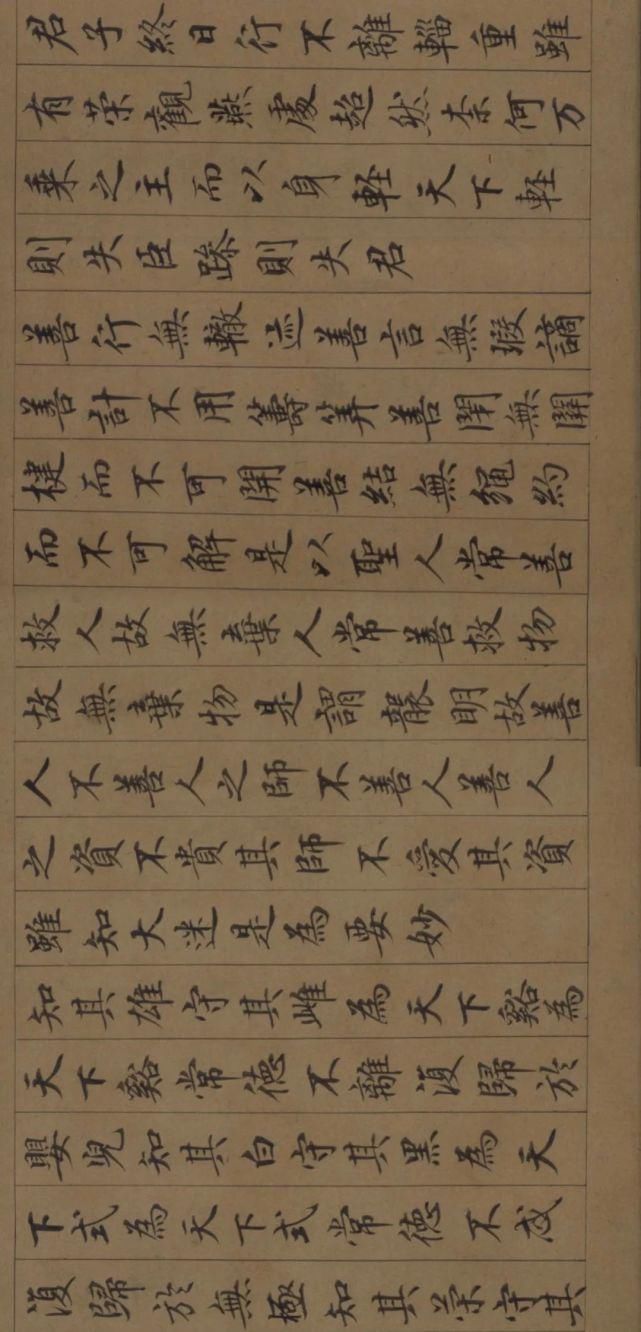 君子終日行不離輜重雖
有荣觀燕處超然柰何万
乗之主而以身軽天下軽
則失臣躁則失君
善行無轍迹善言無瑕讁
善計不用籌筭善閇無關
楗而不可開善結無繩約
而不可解是以聖人常善
救人故無棄人常善救物
故無棄物是謂襲明故善
人不善人之師不善人善人
之資不貴其師不愛其資
雖知大迷是為要妙
知其雄守其雌為天下谿為
天下谿常徳不離復歸於
嬰児知其白守其黒為天
下式為天下式常徳不忒
復歸於無極知其荣守其